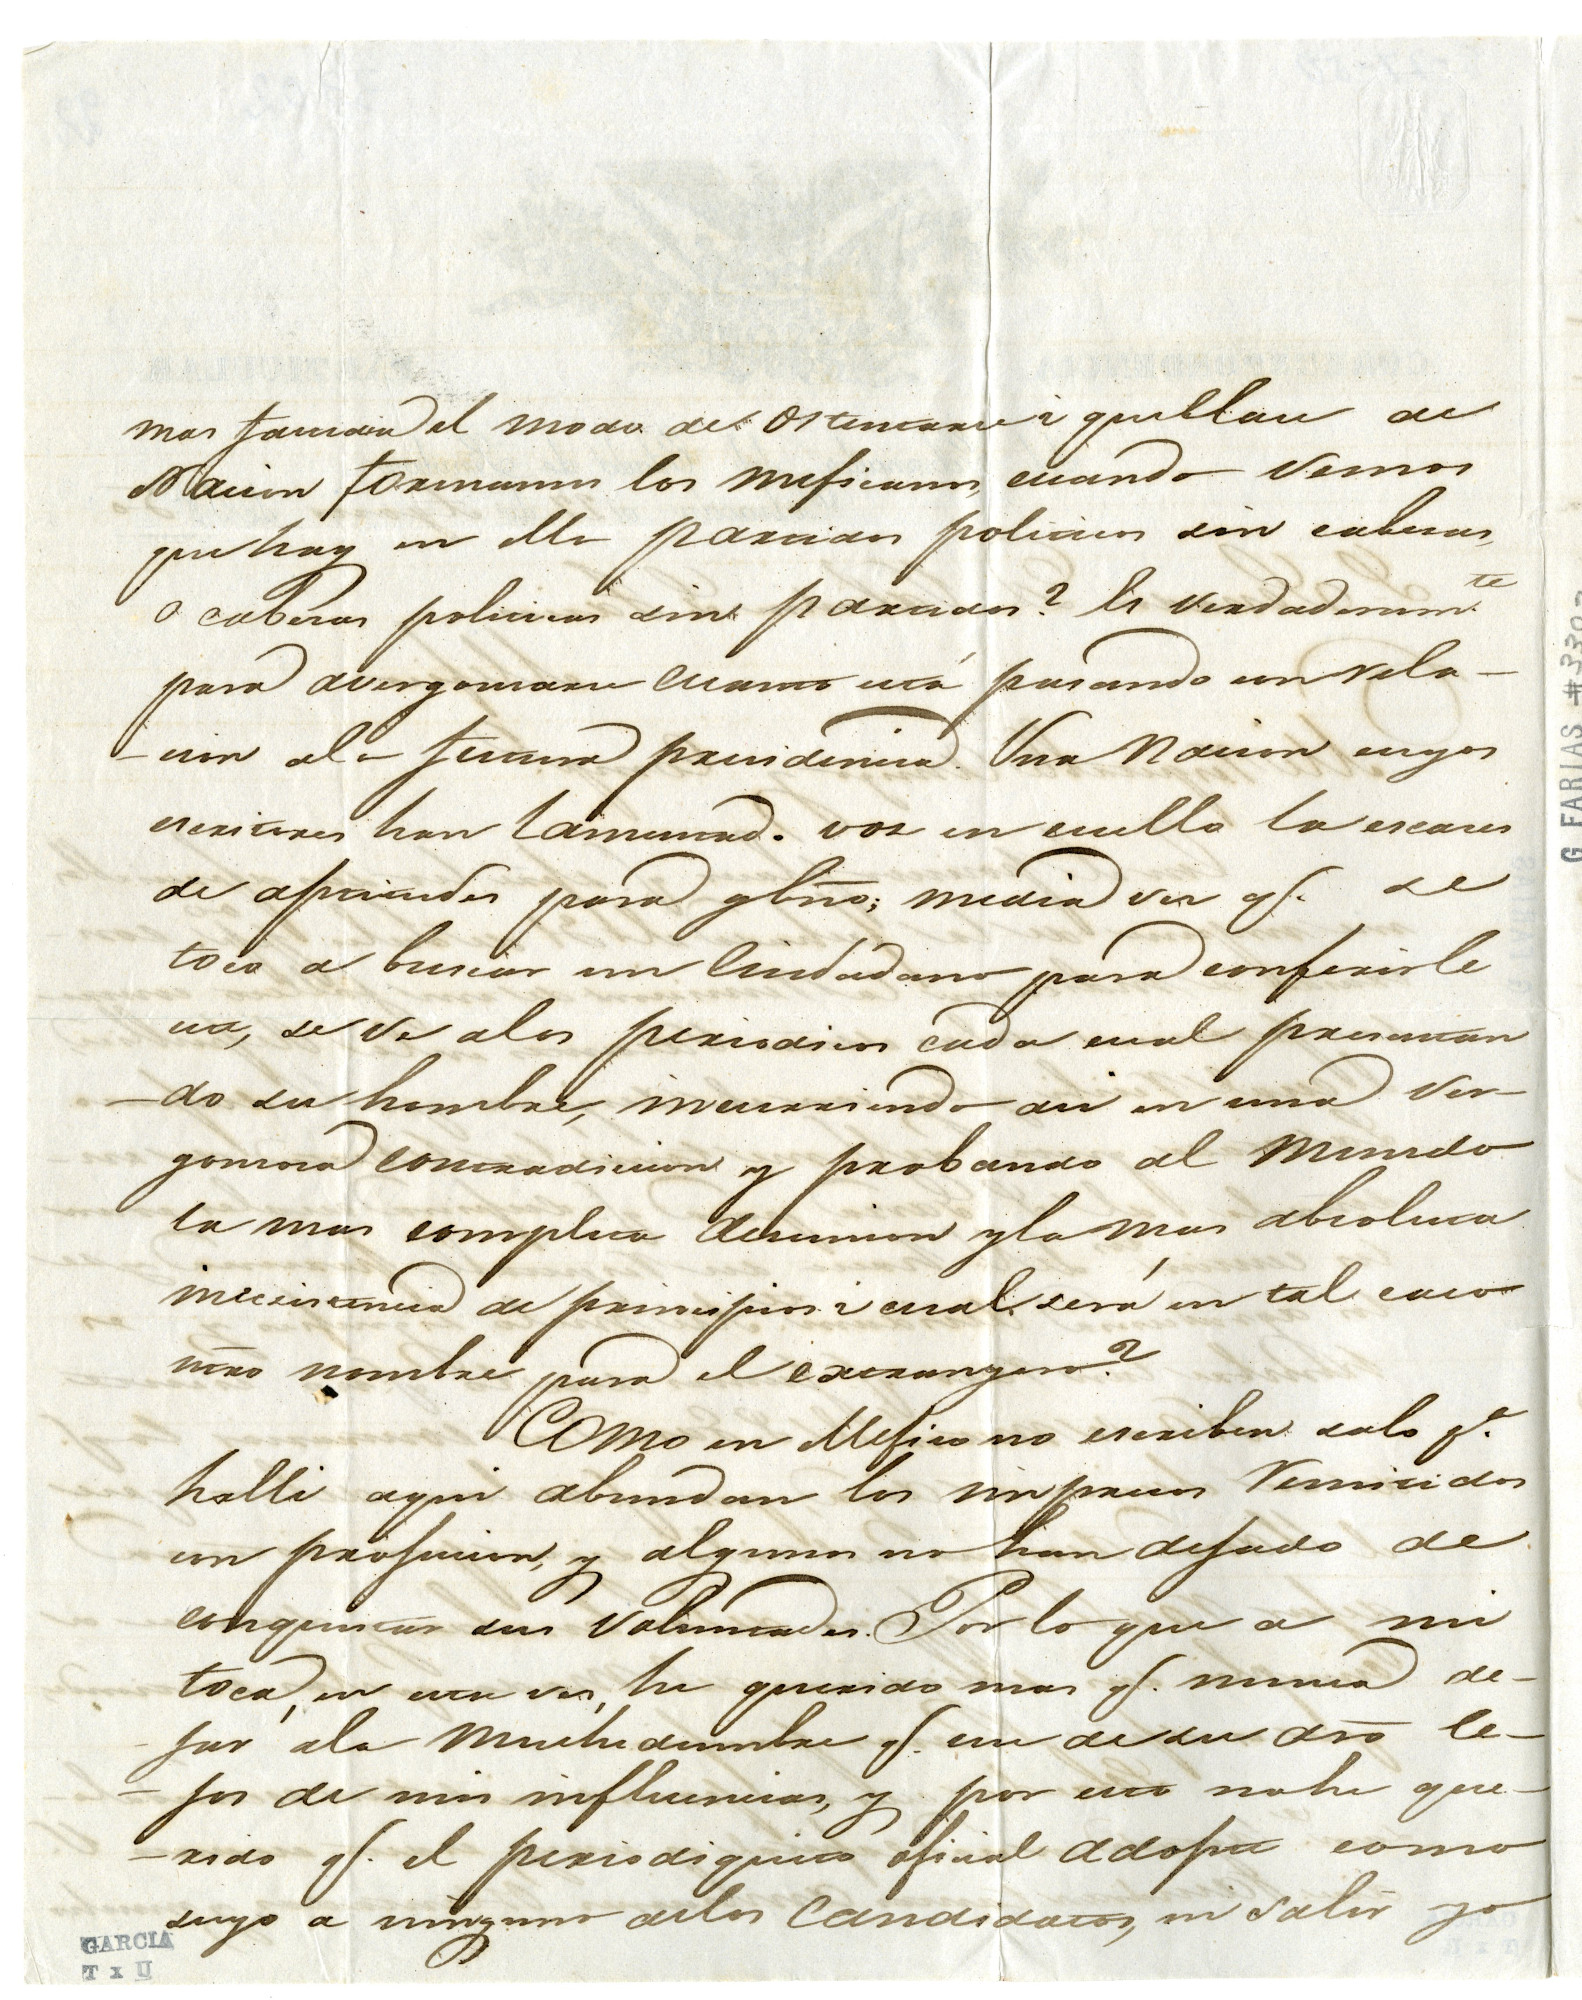 mas funcion el modo de ostentarse i que clase de
Nacion formamos los Mejicanos, cuando vemos
que hay en ella partidos politicos sin cabezas,
o cabezas politicas sin partidos? Es verdaderamte
para avergonzarse cuanto está pasando con rela-
-cion ala futura presidencia. Una Nacion cuyos
escritores han lamentado voz en cuello la escases
de aptitudes para gbno; media vez q. se
toca a buscar un Ciudadano para conferirle
esta, se ve alos periodicos cada cual presentan
-do su hombre, incurriendo asi en una ver-
gonzosa contradicion y probando al Mundo
la mas completa desunion yla mas absoluta
inecsistencia de principios ¿cual será en tal caso
ntro nombre para el extrangero?
Como en Mejico no escriben solo pa
halli aqui abundan los impresos remitidos
con profusion, y algunos no han dejado de
conquistar sus voluntades. Por lo que a mi
toca, en esta vez, he querido mas q. nunca de-
jar ala Muchedumbre q. use de su dro le-
-jos de mis influencias, y por esto nohe que-
-rido q. el periodiquito oficial adopte como
suyo a ninguno delos Candidatos, ni salir yo
GARCIA
T x U
G FARIAS #3307